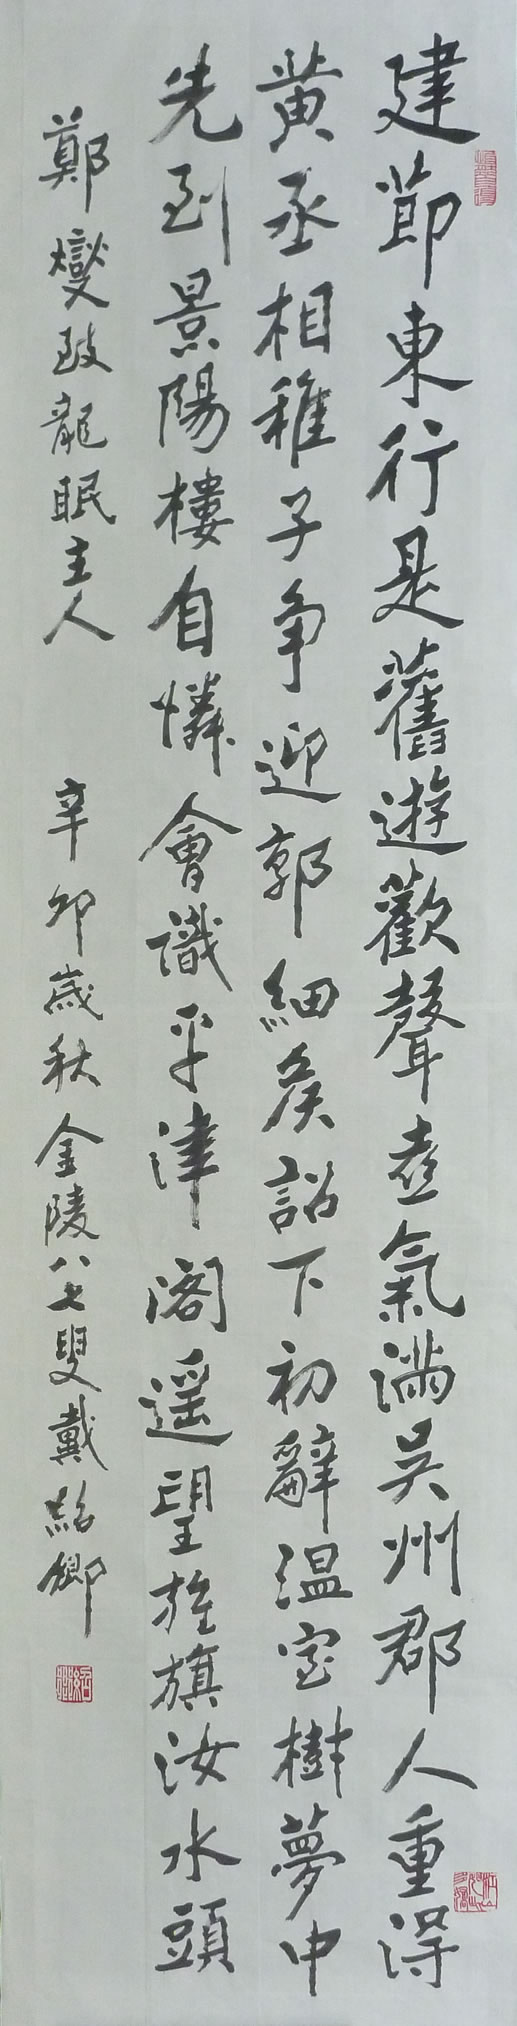 建節東行是舊遊歡聲喜氣滿吳州郡人重得
黃丞相稚子争迎郭細侯詔下初辭温室樹夢中
先到景陽樓自憐曾識平津閣遥望旌旗汝水頭
鄭燮致龍眠主人 辛卯歲秋金陵八七叟戴紹鄉